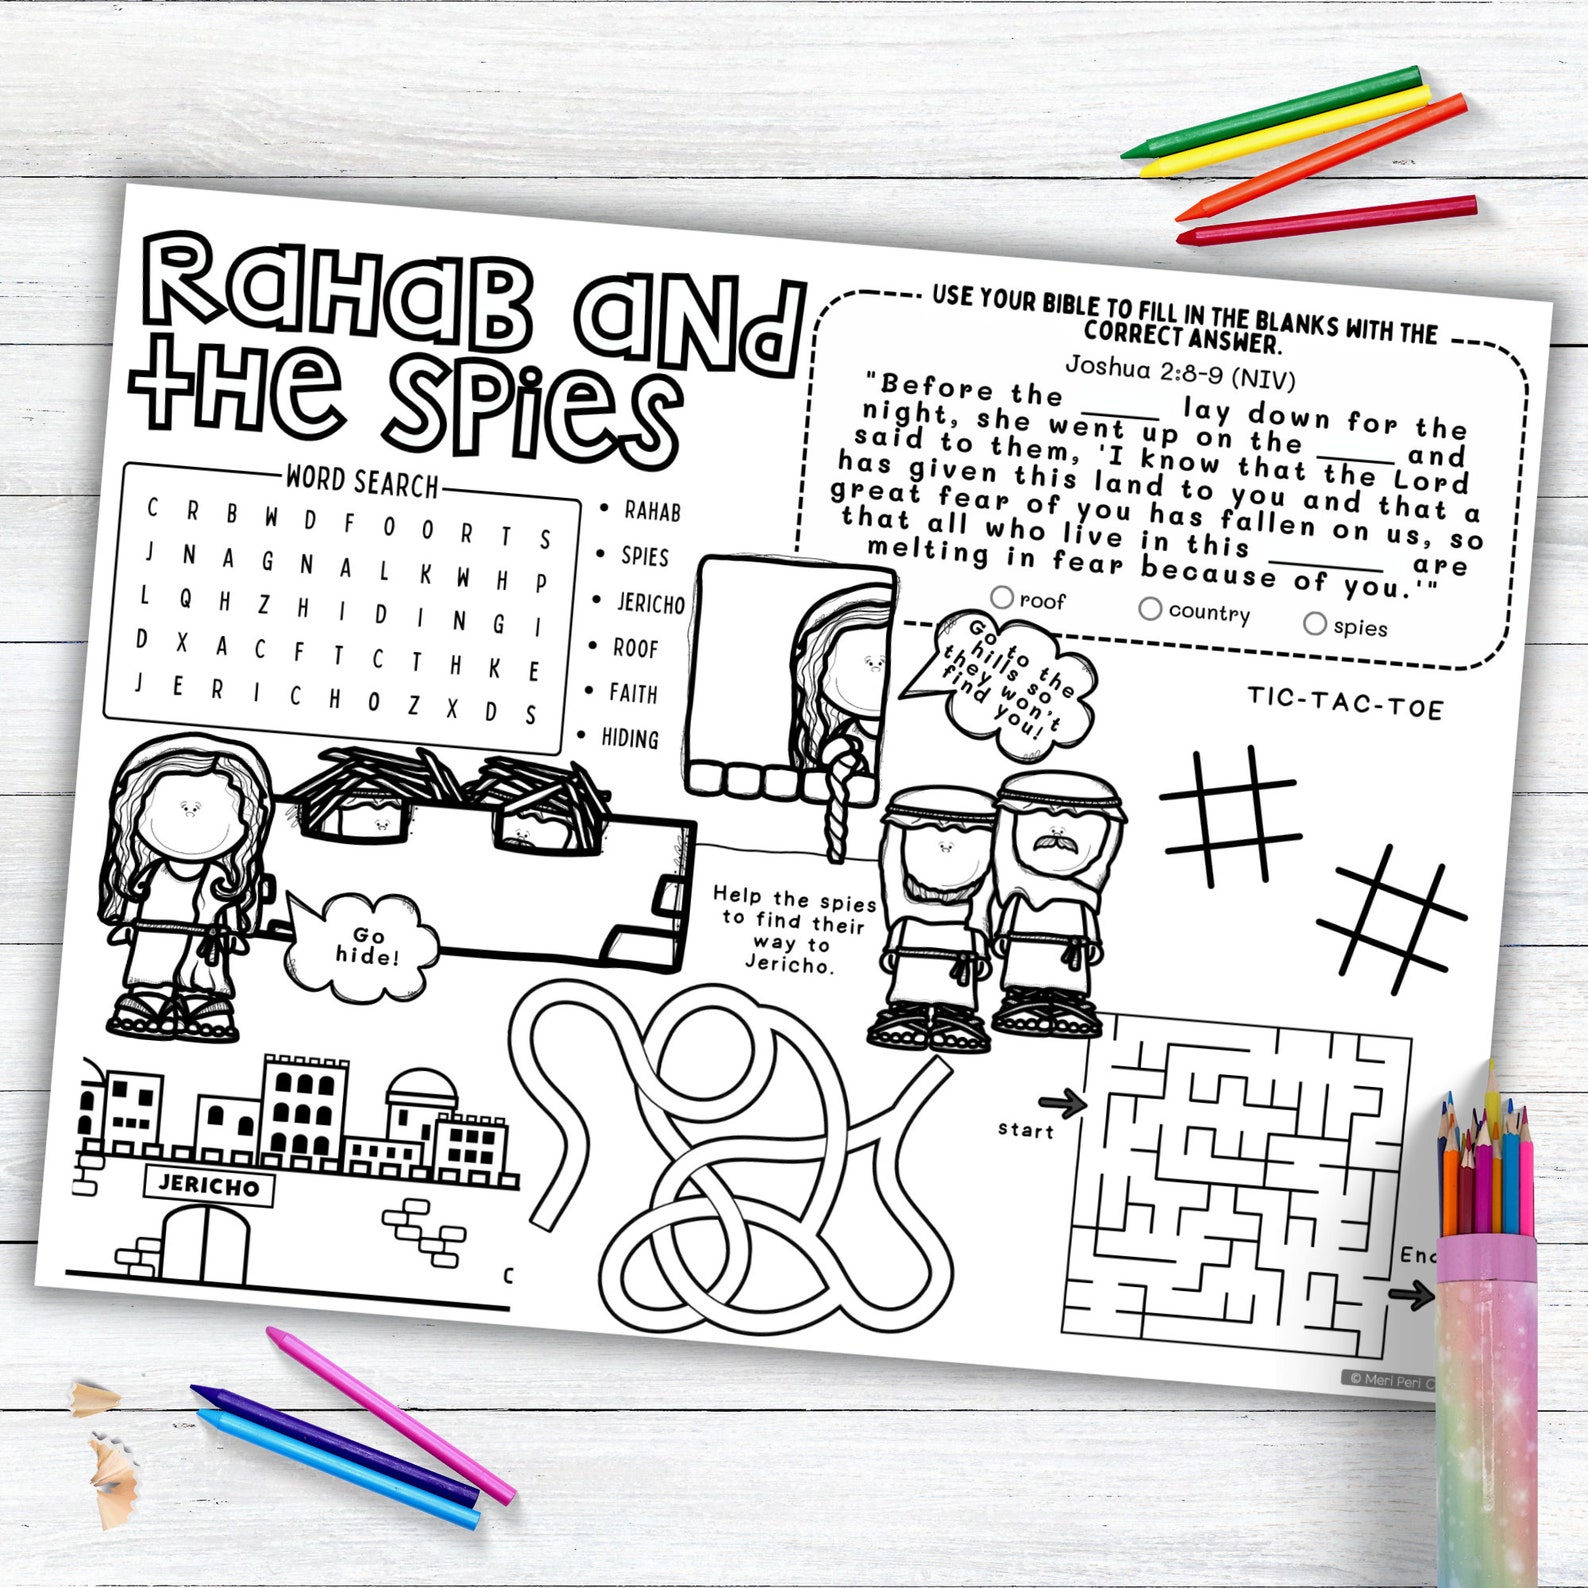 RaHaB aNd
tHe SPieS
WORD SEARCH
C R B W D F O O R T S
J N A G N A L K W H P
L Q H Z H I D I N G I
D X A C F T C T H K E
J E R I C H O Z X D S
• RAHAB
• SPIES
• JERICHO
• ROOF
• FAITH
• HIDING
USE YOUR BIBLE TO FILL IN THE BLANKS WITH THE
CORRECT ANSWER.
Joshua 2:8-9 (NIV)
"Before the _____ lay down for the
night, she went up on the _____ and
said to them, 'I know that the Lord
has given this land to you and that a
great fear of you has fallen on us, so
that all who live in this _________ are
melting in fear because of you.'"
roof
country
spies
Go to the
hills so
they won't
find you!
TIC-TAC-TOE
Go
hide!
Help the spies
to find their
way to
Jericho.
start
JERICHO
© Meri Peri